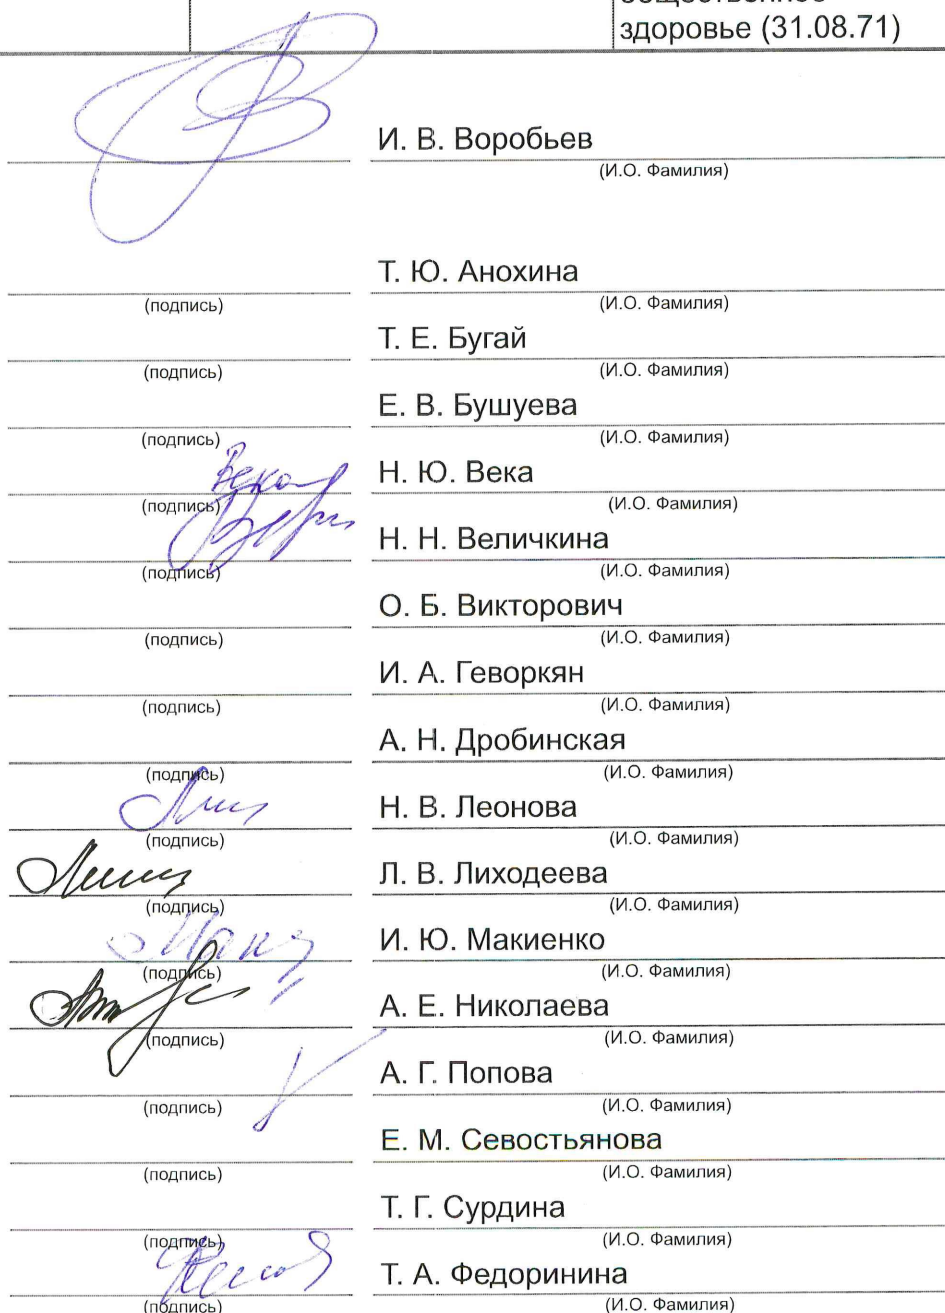 здоровье (31.08.71)
И. В. Воробьев
(И.О. Фамилия)
Т. Ю. Анохина
(подпись) (И.О. Фамилия)
Т. Е. Бугай
(подпись) (И.О. Фамилия)
Е. В. Бушуева
(подпись) (И.О. Фамилия)
Века Н. Ю. Века
(подпись) (И.О. Фамилия)
Н. Н. Величкина
(подпись) (И.О. Фамилия)
О. Б. Викторович
(подпись) (И.О. Фамилия)
И. А. Геворкян
(подпись) (И.О. Фамилия)
А. Н. Дробинская
(подпись) (И.О. Фамилия)
Н. В. Леонова
(подпись) (И.О. Фамилия)
Л. В. Лиходеева
(подпись) (И.О. Фамилия)
И. Ю. Макиенко
(подпись) (И.О. Фамилия)
А. Е. Николаева
(подпись) (И.О. Фамилия)
А. Г. Попова
(подпись) (И.О. Фамилия)
Е. М. Севостьянова
(подпись) (И.О. Фамилия)
Т. Г. Сурдина
(подпись) (И.О. Фамилия)
Т. А. Федоринина
(подпись) (И.О. Фамилия)